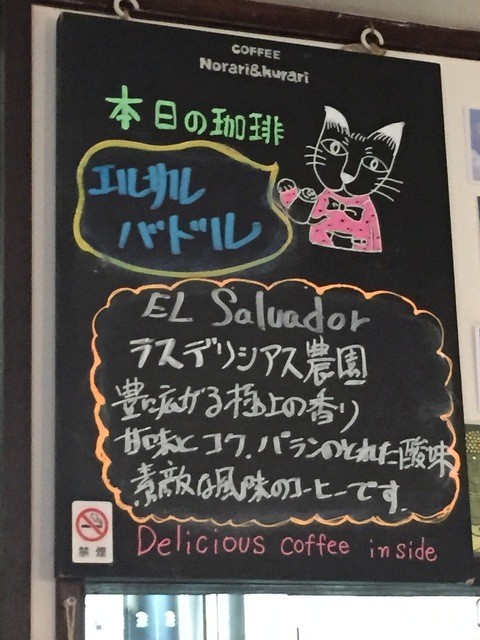 COFFEE
Norari&Kurari
本日の珈琲
エルサル
バドル
EL Salvador
ラスデリシアス農園
豊に広がる極上の香り
甘味とコク、バランのとれた酸味
素敵な風味のコーヒーです.
禁煙
Delicious coffee inside